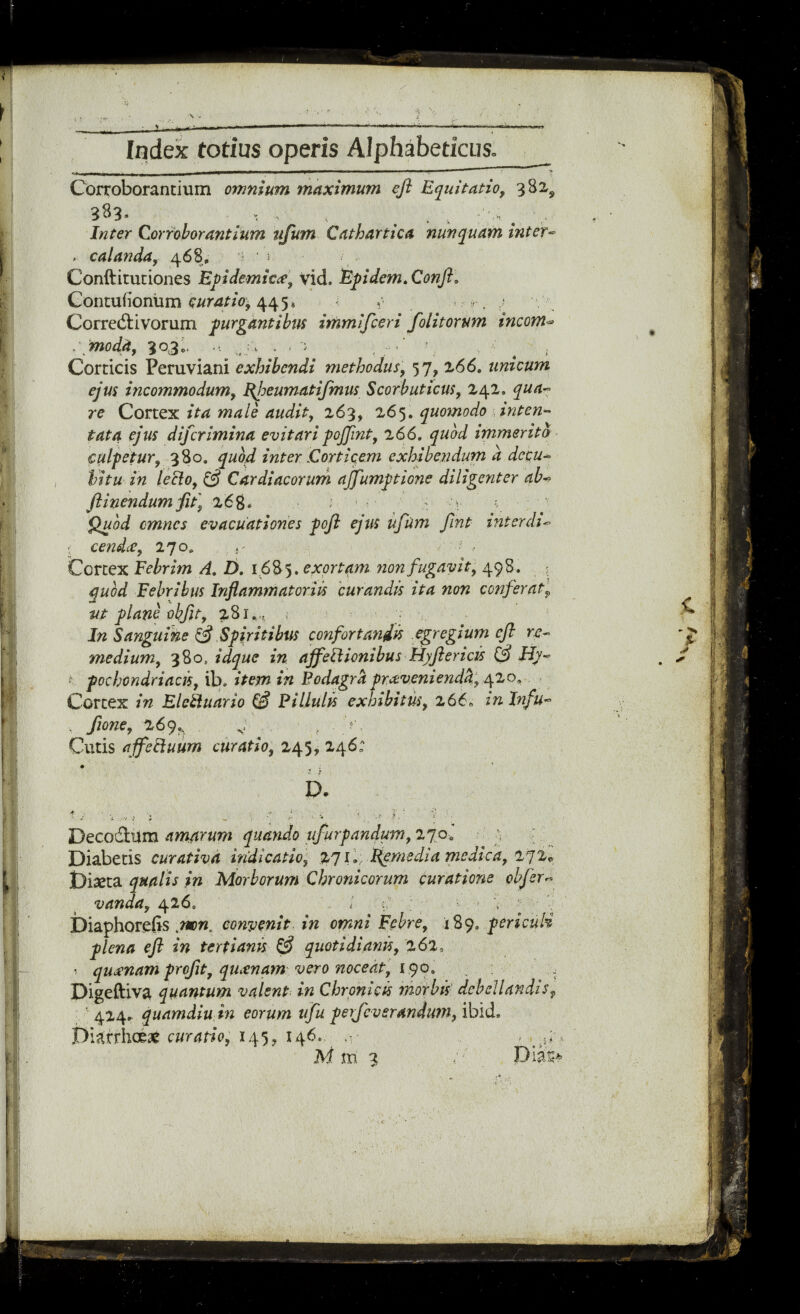 Index totius operis Alphabeticus.
Corroborantium omnium maximum eſt Equitatio, 382,
383.
Inter Corroborantium uſum Cathartica nunquam inter-
calanda, 468.
Conſtitutiones Epidemicæ, vid. Epidem. Conſt.
Contuſionum curatio, 445.
Correctivorum purgantibus immiſceri ſolitorum incom-
moda, 303.
Corticis Peruviani exhibendi methodus, 57, 266. unicum
ejus incommodum, Rheumatiſmus Scorbuticus, 242. qua-
re Cortex ita malè audit, 263, 265. quomodo inten-
tata ejus diſcrimina evitari poſſint, 266. quòd immeritò
culpetur, 380. quòd inter Corticem exhibendum à decu-
bitu in lecto, & Cardiacorum aſſumptione diligenter ab-
ſtinendum ſit, 268.
Quòd omnes evacuationes poſt ejus uſum ſint interdi-
cendæ, 270.
Cortex Febrim A. D. 1685. exortam non fugavit, 498.
quòd Febribus Inflammatoriis curandis ita non conferat,
ut planè obſit, 281.
In Sanguine & Spiritibus confortandis egregium eſt re-
medium, 380. idque in affectionibus Hyſtericis & Hy-
pochondriacis, ib. item in Podagrâ præveniendâ, 420.
Cortex in Electuario & Pillulis exhibitus, 266. in Infu-
ſione, 269.
Cutis affectuum curatio, 245, 246.
D.
Decoctum amarum quando uſurpandum, 270.
Diabetis curativa indicatio, 271. Remedia medica, 272.
Diæta qualis in Morborum Chronicorum curatione obſer-
vanda, 426.
Diaphoreſis non convenit in omni Febre, 189. periculi
plena eſt in tertianis & quotidianis, 262.
quænam proſit, quænam vero noceat, 190.
Digeſtiva quantum valent in Chronicis morbis debellandis,
424. quamdiu in eorum uſu perſeverandum, ibid.
Diarrhœæ curatio, 145, 146.
M m 3 Diar-